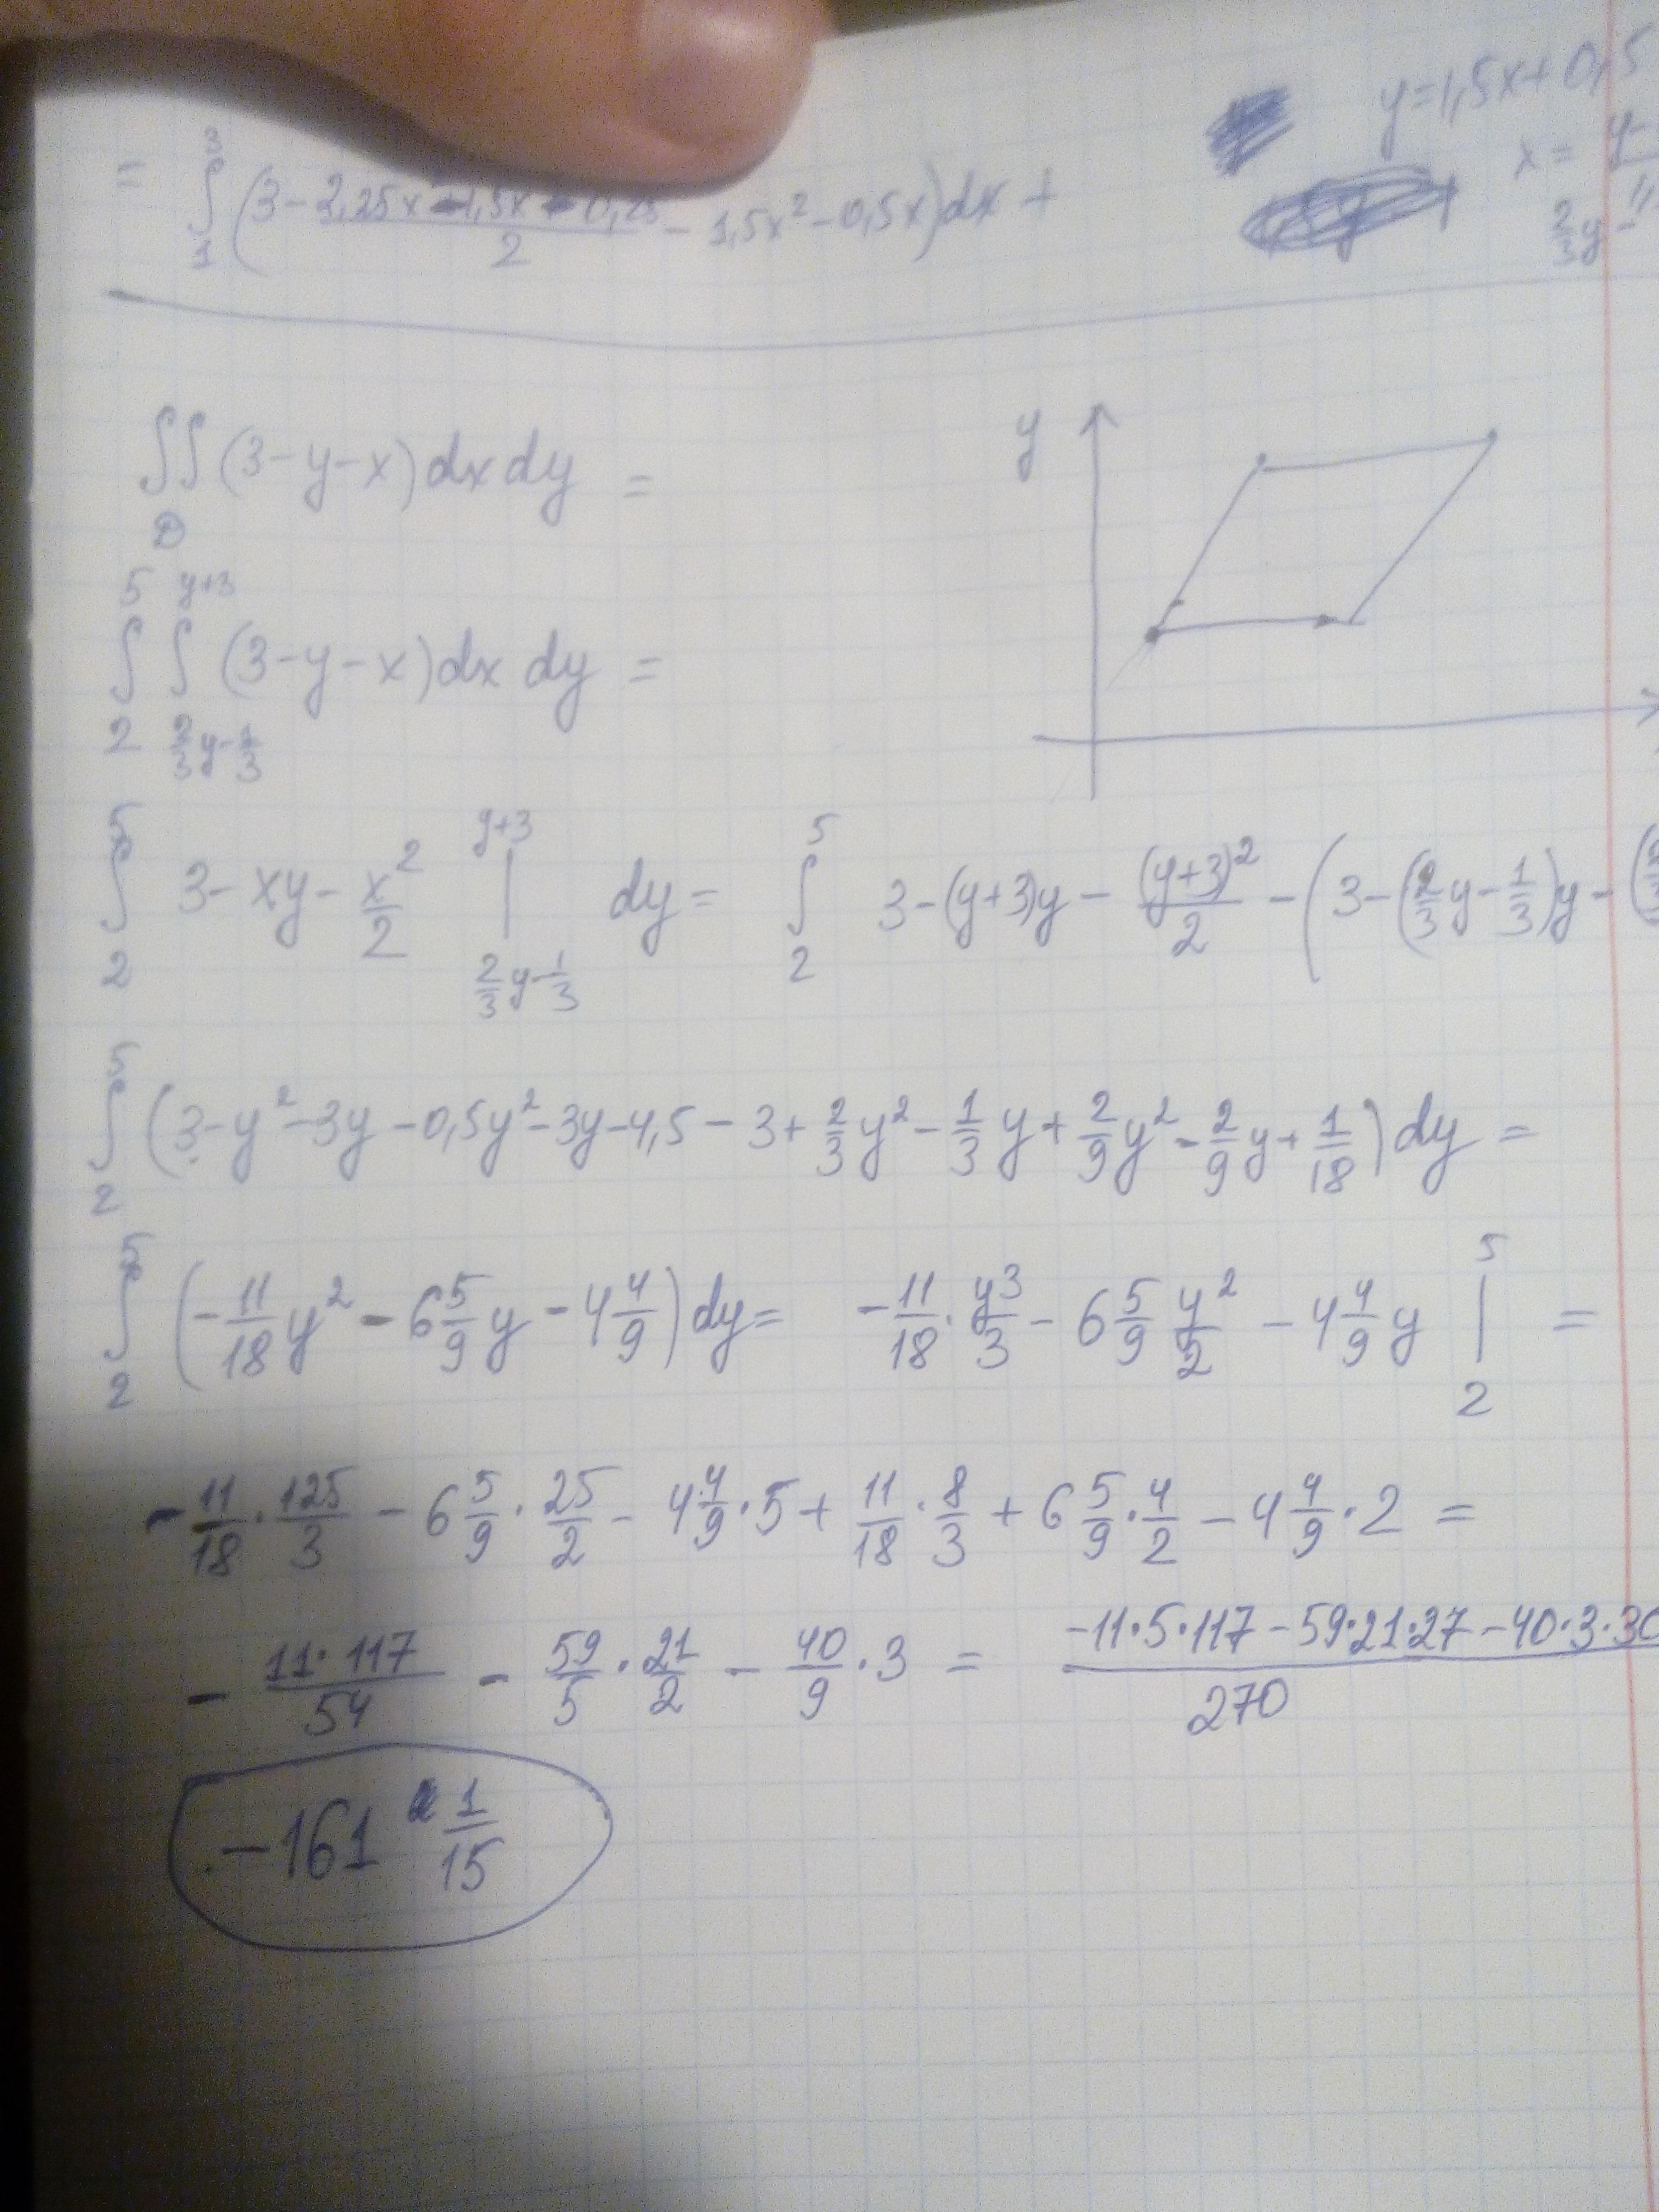 y=1,5x+0,5
= ∫₁³ (3 - (2,25x² - 1,5x - 0,25)/2 - 1,5x² - 0,5x)dx +
x = y-
2/3 y -
∬_D (3-y-x)dx dy =
y
∫₂⁵ ∫_{2/3 y - 1/3}^{y+3} (3-y-x)dx dy =
∫₂⁵ 3 - xy - x²/2 |_{2/3 y - 1/3}^{y+3} dy = ∫₂⁵ 3-(y+3)y - (y+3)²/2 - (3-(2/3 y - 1/3)y - (
∫₂⁵ (3-y²-3y-0,5y²-3y-4,5-3+2/3 y² - 1/3 y + 2/9 y² - 2/9 y + 1/18) dy =
∫₂⁵ (-11/18 y² - 6 5/9 y - 4 4/9) dy = -11/18 · y³/3 - 6 5/9 y²/2 - 4 4/9 y |₂⁵ =
-11/18 · 125/3 - 6 5/9 · 25/2 - 4 4/9 · 5 + 11/18 · 8/3 + 6 5/9 · 4/2 - 4 4/9 · 2 =
- 11·117/54 - 59/5 · 21/2 - 40/9 · 3 = (-11·5·117 - 59·21·27 - 40·3·30)/270
-161 1/15